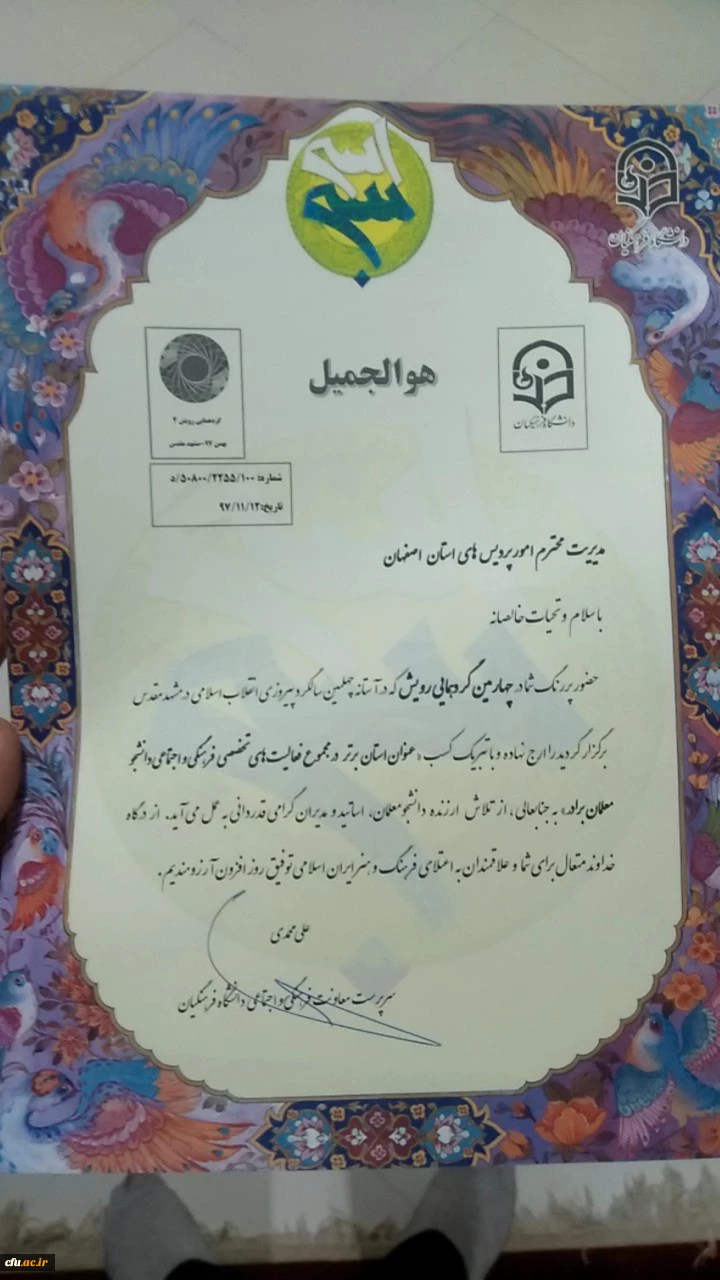 دانشگاه فرهنگیان
هوالجمیل
دانشگاه فرهنگیان
گردهمایی رویش ۴
بهمن ۹۷-مشهد مقدس
شماره: ۵۰۸۰۰/۲۲۵۵/۱۰۰/د
تاریخ: ۹۷/۱۱/۱۲
مدیریت محترم امور پردیس های استان اصفهان
با سلام و تحیات خالصانه
حضور پررنگ شما در چهارمین گردهمایی رویش که در آستانه چهلمین سالگرد پیروزی انقلاب اسلامی در مشهد مقدس
برگزار گردید را ارج نهاده و با تبریک کسب «عنوان استان برتر در مجموع فعالیت های تخصصی فرهنگی و اجتماعی دانشجو
معلمان برادر» به جنابعالی، از تلاش ارزنده دانشجو معلمان، اساتید و مدیران گرامی قدردانی به عمل می آید. از درگاه
خداوند متعال برای شما و علاقمندان به اعتلای فرهنگ و هنر ایران اسلامی توفیق روز افزون آرزومندیم.
علی محمدی
سرپرست معاونت فرهنگی و اجتماعی دانشگاه فرهنگیان
cfu.ac.ir